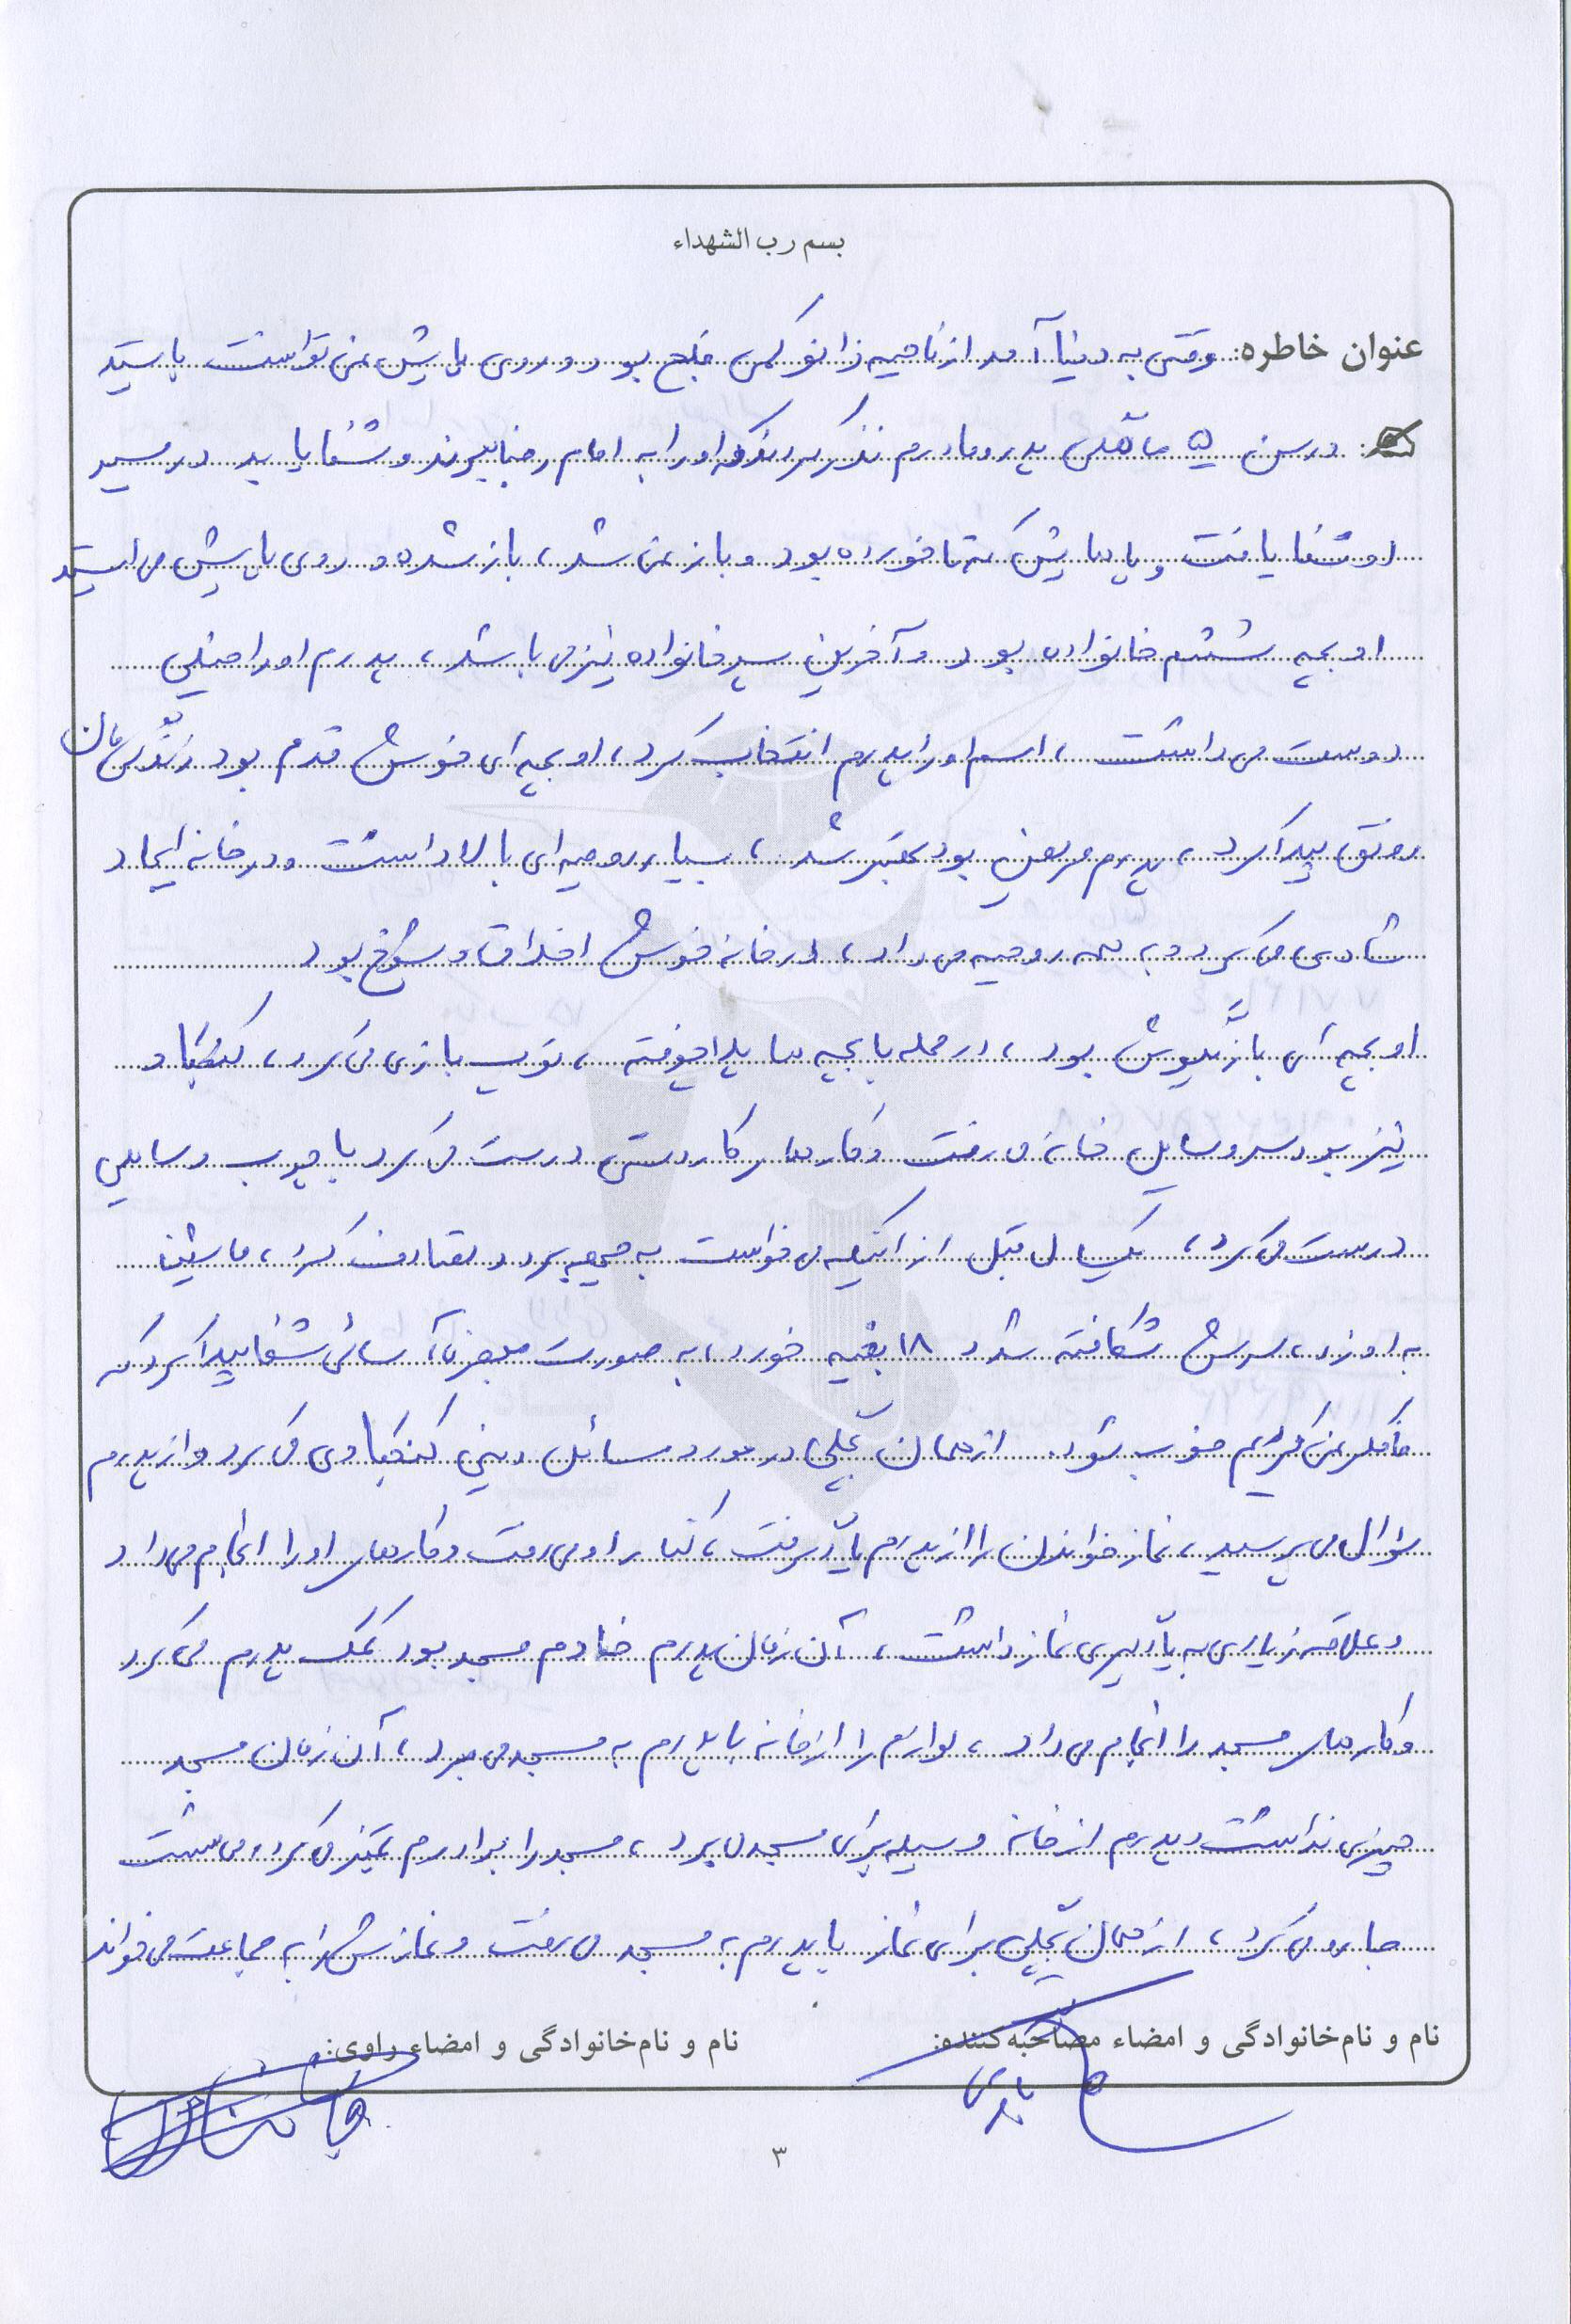 بسم رب الشهداء
عنوان خاطره: وقتی به دنیا آمد از ناحیه زانو کمی فلج بود و روی پایش نمی توانست بایستد
در سن ۵ ماهگی پدر و مادرم نذر کردند که او را به امام رضا ببرند و شفا یابد در مسیر
او شفا یافت و پاهایش که تا خورده بود و باز نمی شد، باز شده و روی پایش می ایستد
او بچه ششم خانواده بود و آخرین پسر خانواده نیز می باشد، پدرم او را خیلی
دوست می داشت، اسم او را پدرم انتخاب کرد، او بچه ای خوش قدم بود زندگی مان
رونق پیدا کرد، پدرم مریض بود بهتر شد، بسیار روحیه ای بالا داشت و در خانه ایجاد
شادی می کرد و به همه روحیه می داد، در خانه خوش اخلاق و شوخ بود
او بچه ای بازیگوش بود، در محله با بچه ها یه توپ بازی می کرد، کنجکاو
نیز بود سر وسایل خانه می رفت و کارهای کاردستی درست می کرد با چوب وسایلی
درست می کرد، یکسال قبل از اینکه می خواست به جبهه برود تصادف کرد، ماشین
به او زد، سرش شکافته شد و ۱۸ بخیه خورد، به صورت معجزه آسائی شفا پیدا کرد که
ما فکر نمی کردیم خوب شود. از همان بچگی در مورد مسائل دینی کنجکاوی می کرد و از پدرم
سؤال می پرسید، نماز خواندن را از پدرم یاد گرفت، کنار او می رفت و کارهای او را انجام می داد
و علاقه زیادی به یادگیری نماز داشت، آن زمان پدرم خادم مسجد بود کمک پدرم می کرد
و کارهای مسجد را انجام می داد، لوازم را از خانه با پدرم به مسجد می برد، آن زمان مسجد
چیزی نداشت و پدرم از خانه وسیله برای مسجد می برد، مسجد را برادرم تمیز می کرد، می شست
جارو می کرد، از همان بچگی برای نماز با پدرم به مسجد می رفت و نمازش را به جماعت می خواند
نام و نام خانوادگی و امضاء مصاحبه کننده: نام و نام خانوادگی و امضاء راوی:
۳